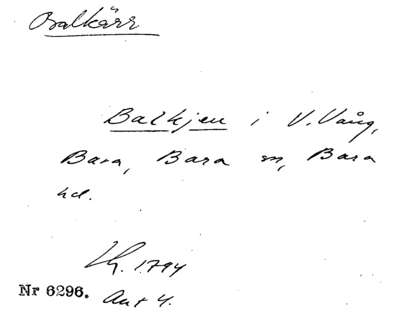 Balkärr
Balkjen i V. Vång,
Bara, Bara sn, Bara
hd.
Lh. 1794
Nr 6296. Akt 4.